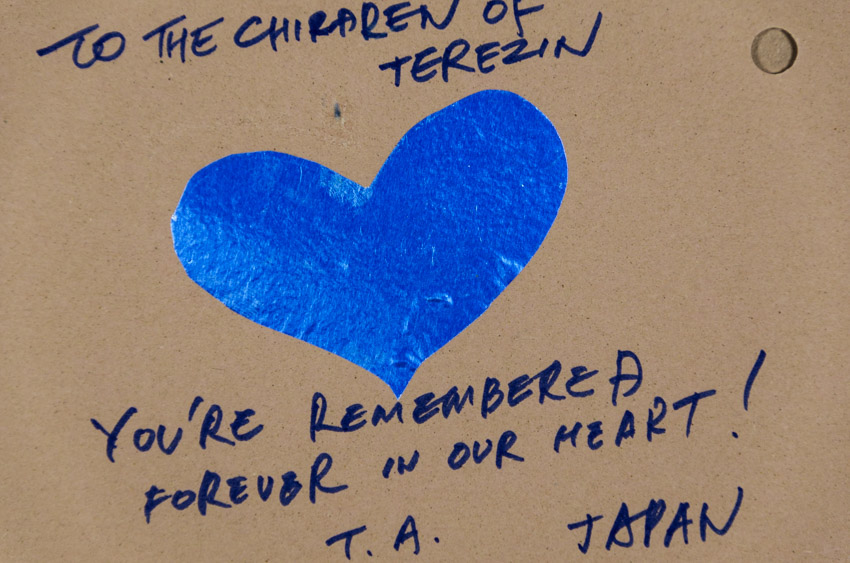 TO THE CHILDREN OF
TEREZIN
YOU'RE REMEMBERED
FOREVER IN OUR HEART!
T. A. JAPAN